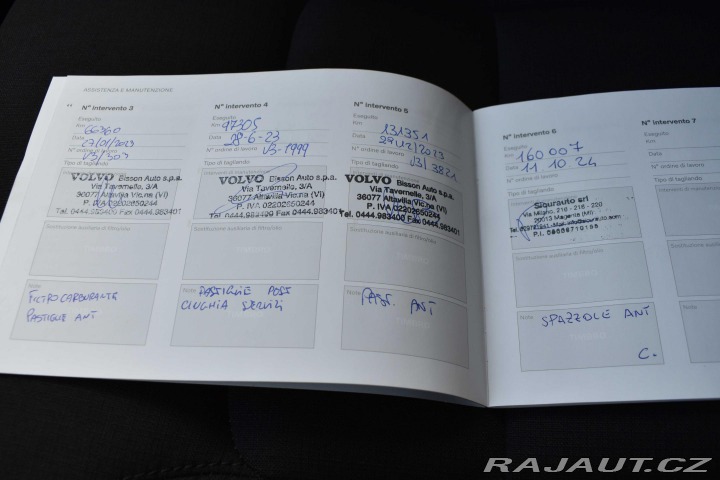 ASSISTENZA E MANUTENZIONE
N° intervento 3
Eseguito
Km 66360
27/01/2023
N° ordine di lavoro
V3/303
Tipo di tagliando
VOLVO Bisson Auto s.p.a.
Via Tavernello, 3/A
36077 Altavilla Vic.na (VI)
P. IVA 02202650244
Tel. 0444.983400 Fax 0444.983401
Sostituzione ausiliaria di filtro/olio
TIMBRO
Note
FILTRO CARBURANTE
PASTIGLIE ANT
N° intervento 4
Eseguito
Km 97305
Data 28-6-23
N° ordine di lavoro
V3-1999
Tipo di tagliando
VOLVO Bisson Auto s.p.a.
Via Tavernello, 3/A
36077 Altavilla Vic.na (VI)
P. IVA 02202650244
Tel. 0444.983400 Fax 0444.983401
Sostituzione ausiliaria di filtro/olio
Note
PASTIGLIE POST
CINGHIA SERVIZI
N° intervento 5
Eseguito
Km 131351
29/12/2023
N° ordine di lavoro
V3/3821
Tipo di tagliando
VOLVO Bisson Auto s.p.a.
Via Tavernello, 3/A
36077 Altavilla Vic.na (VI)
P. IVA 02202650244
Tel. 0444.983400 Fax 0444.983401
Sostituzione ausiliaria di filtro/olio
Note
PAST. ANT
N° intervento 6
Eseguito
Km 160007
Data 11 10 24
N° ordine di lavoro
Tipo di tagliando
Siqurauto srl
Via Milano, 216 - 218 - 220
20013 Magenta (MI)
Sostituzione ausiliaria di filtro/olio
Note
SPAZZOLE ANT
C.
N° intervento 7
Eseguito
Km
Data
N° ordine di lavoro
Tipo di tagliando
Note
RAJAUT.CZ